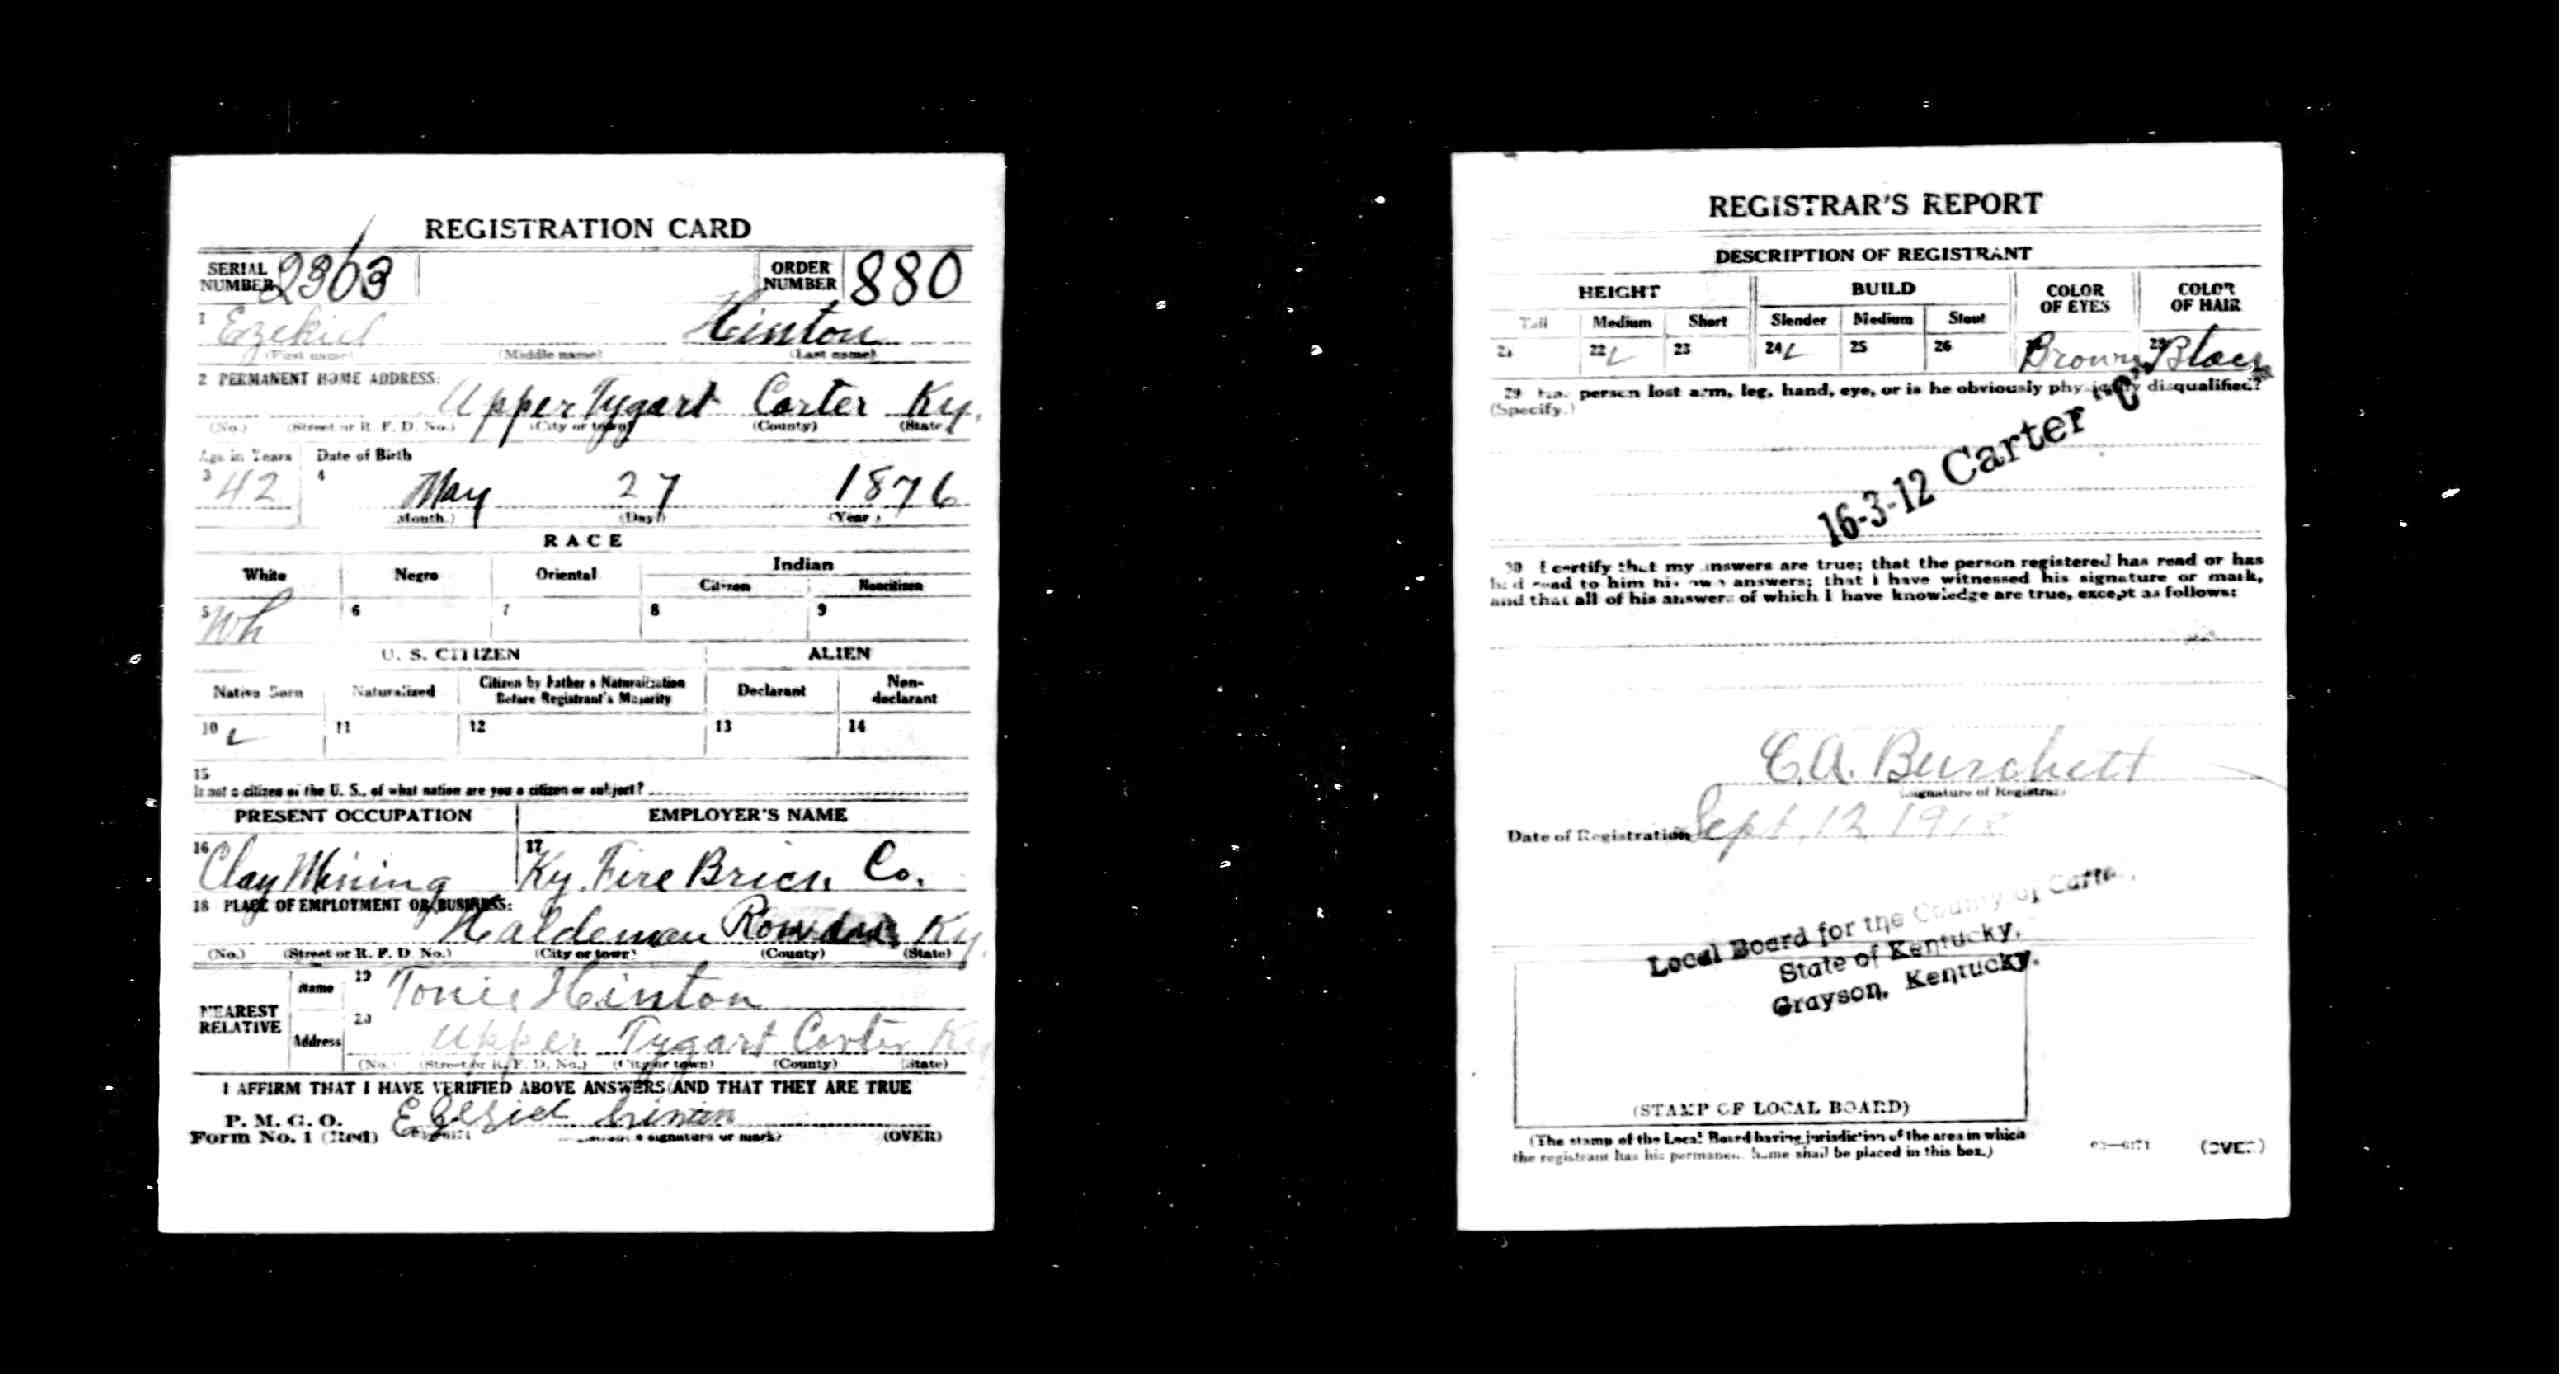 REGISTRATION CARD
SERIAL NUMBER 2363
ORDER NUMBER 880
1 Ezekiel Hinton
(First name) (Middle name) (Last name)
2 PERMANENT HOME ADDRESS:
Upper Tygart Carter Ky.
(No.) (Street or R. F. D. No.) (City or town) (County) (State)
Age in Years Date of Birth
3 42 4 May 27 1876
(Month.) (Day) (Year)
RACE
White Negro Oriental Indian
Citizen Noncitizen
5 Wh 6 7 8 9
U. S. CITIZEN ALIEN
Native Born Naturalized Citizen by Father's Naturalization Before Registrant's Majority Declarant Non-declarant
10 11 12 13 14
15
If not a citizen of the U. S., of what nation are you a citizen or subject?
PRESENT OCCUPATION EMPLOYER'S NAME
16 Clay Mining 17 Ky. Fire Brick Co.
18 PLACE OF EMPLOYMENT OR BUSINESS:
Haldeman Rowan Ky.
(No.) (Street or R. F. D. No.) (City or town) (County) (State)
NEAREST RELATIVE
Name 19 Hinton
Address 20 Upper Tygart Carter Ky
(No.) (Street or R. F. D. No.) (City or town) (County) (State)
I AFFIRM THAT I HAVE VERIFIED ABOVE ANSWERS AND THAT THEY ARE TRUE
P. M. G. O.
Form No. 1 (Red) signature or mark) (OVER)
REGISTRAR'S REPORT
DESCRIPTION OF REGISTRANT
HEIGHT BUILD COLOR OF EYES COLOR OF HAIR
Tall Medium Short Slender Medium Stout
21 22 23 24 25 26 Brown 28 Black
29 Has person lost arm, leg, hand, eye, or is he obviously physically disqualified?
(Specify.)
16-3-12 Carter "C"
30 I certify that my answers are true; that the person registered has read or has
had read to him his own answers; that I have witnessed his signature or mark,
and that all of his answers of which I have knowledge are true, except as follows:
C.A. Burchett
(Signature of Registrar)
Date of Registration Sept. 12 1918
Local Board for the County of Carter,
State of Kentucky,
Grayson, Kentucky.
(STAMP OF LOCAL BOARD)
(The stamp of the Local Board having jurisdiction of the area in which
the registrant has his permanent home shall be placed in this box.)
(OVER)